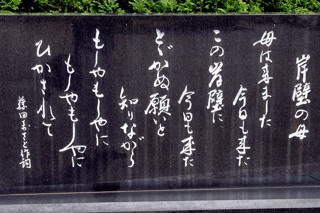 岸壁の母
母は来ました
今日も来た
この岸壁に
今日も来た
とゞかぬ願いと
知りながら
もしやもしやに
もしやもしやに
ひかされて
藤田まさと作詞